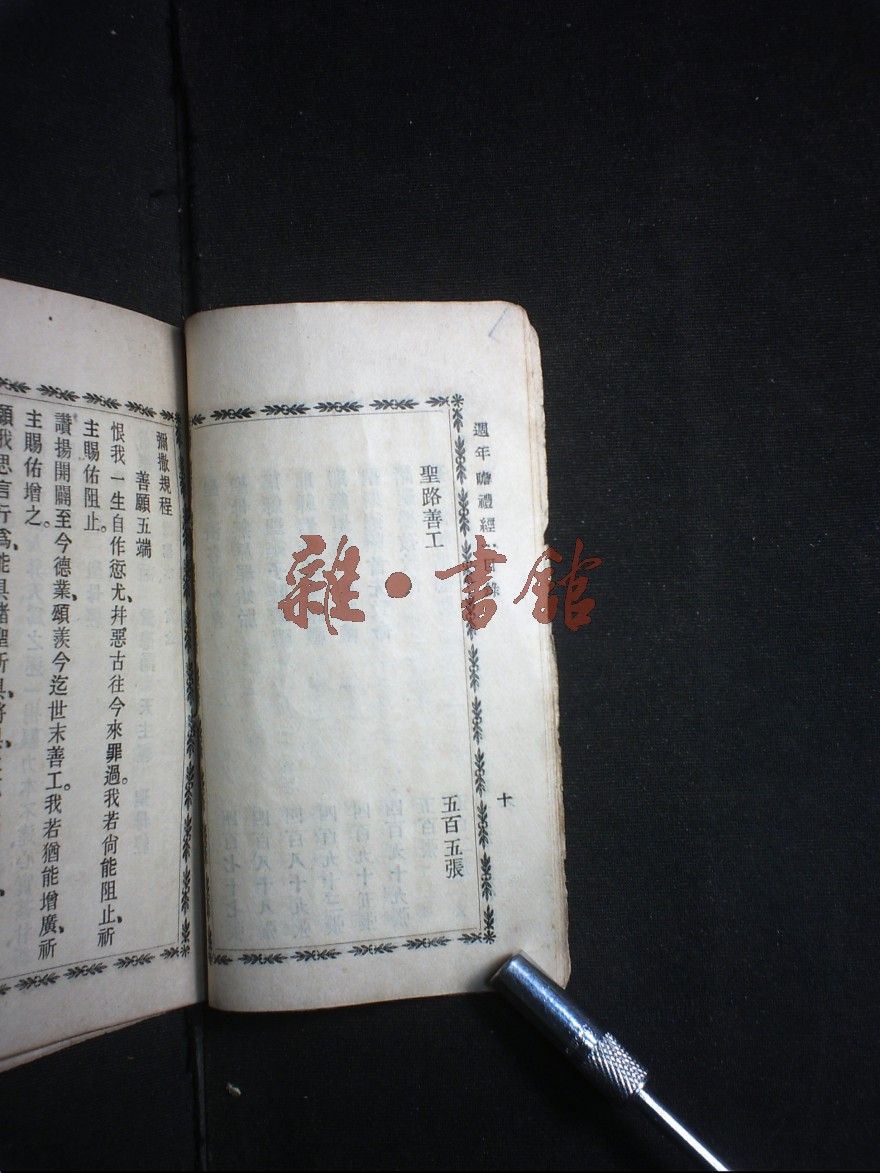 週年瞻禮經
十
聖路善工 五百五張
彌撒規程
善願五端
恨我一生自作愆尤、幷惡古往今來罪過。我若尙能阻止、祈
主賜佑阻止。
讚揚開闢至今德業、頌羨今迄世末善工。我若猶能增廣、祈
主賜佑增之。
願我思言行爲、能具諸聖所具、
雜·書館